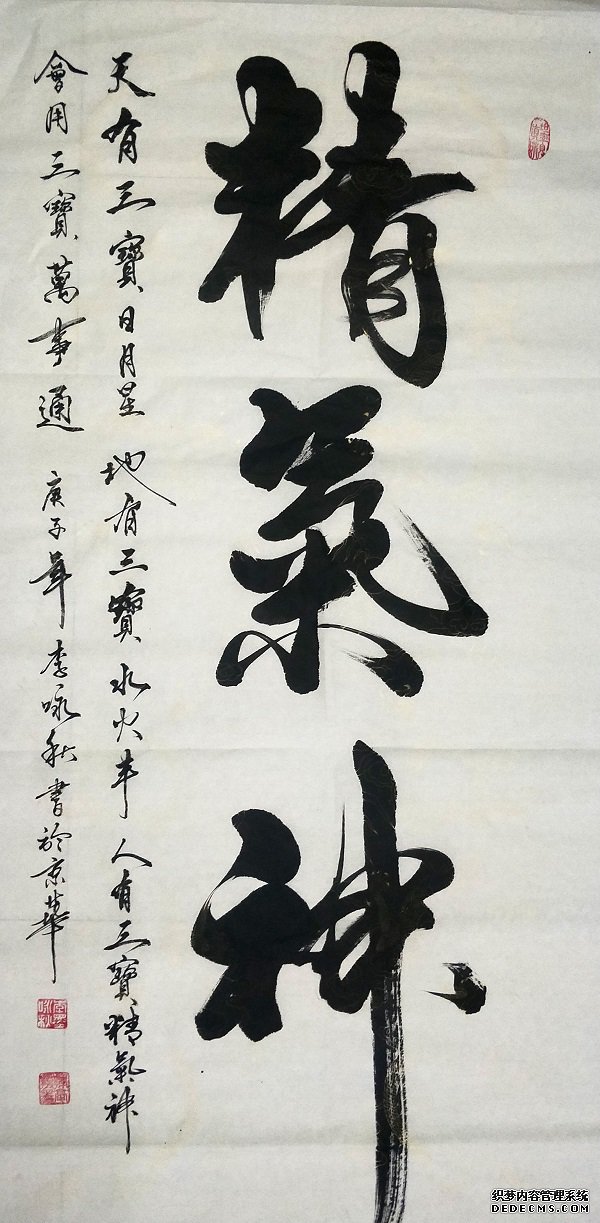 精氣神
天有三寶日月星 地有三寶水火丰 人有三寶精氣神
會用三寶萬事通 庚子年 李咏秋書於京華
织梦内容管理系统
DEDECMS.COM